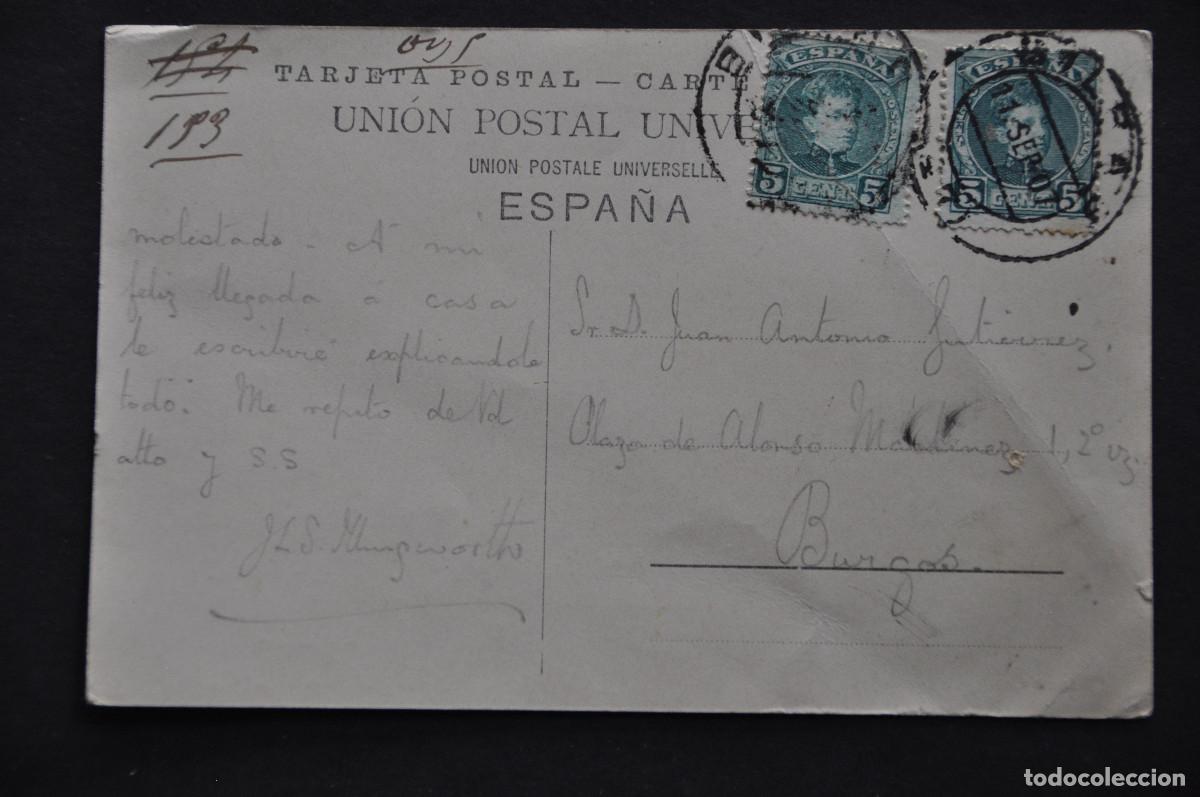 151
193
TARJETA POSTAL — CARTE
UNIÓN POSTAL UNIVE
UNION POSTALE UNIVERSELLE
ESPAÑA
ESPAÑA
5 CENT. 5
ESPAÑA
5 CENT. 5
11 SEP 07
molestado. A mi
feliz llegada á casa
le escribiré explicandole
todo. Me repito de Vd
atto y S.S
Sr. D. Juan Antonio Gutierrez.
Plaza de Alonso Martinez 1, 2º
Burgos.
todocoleccion